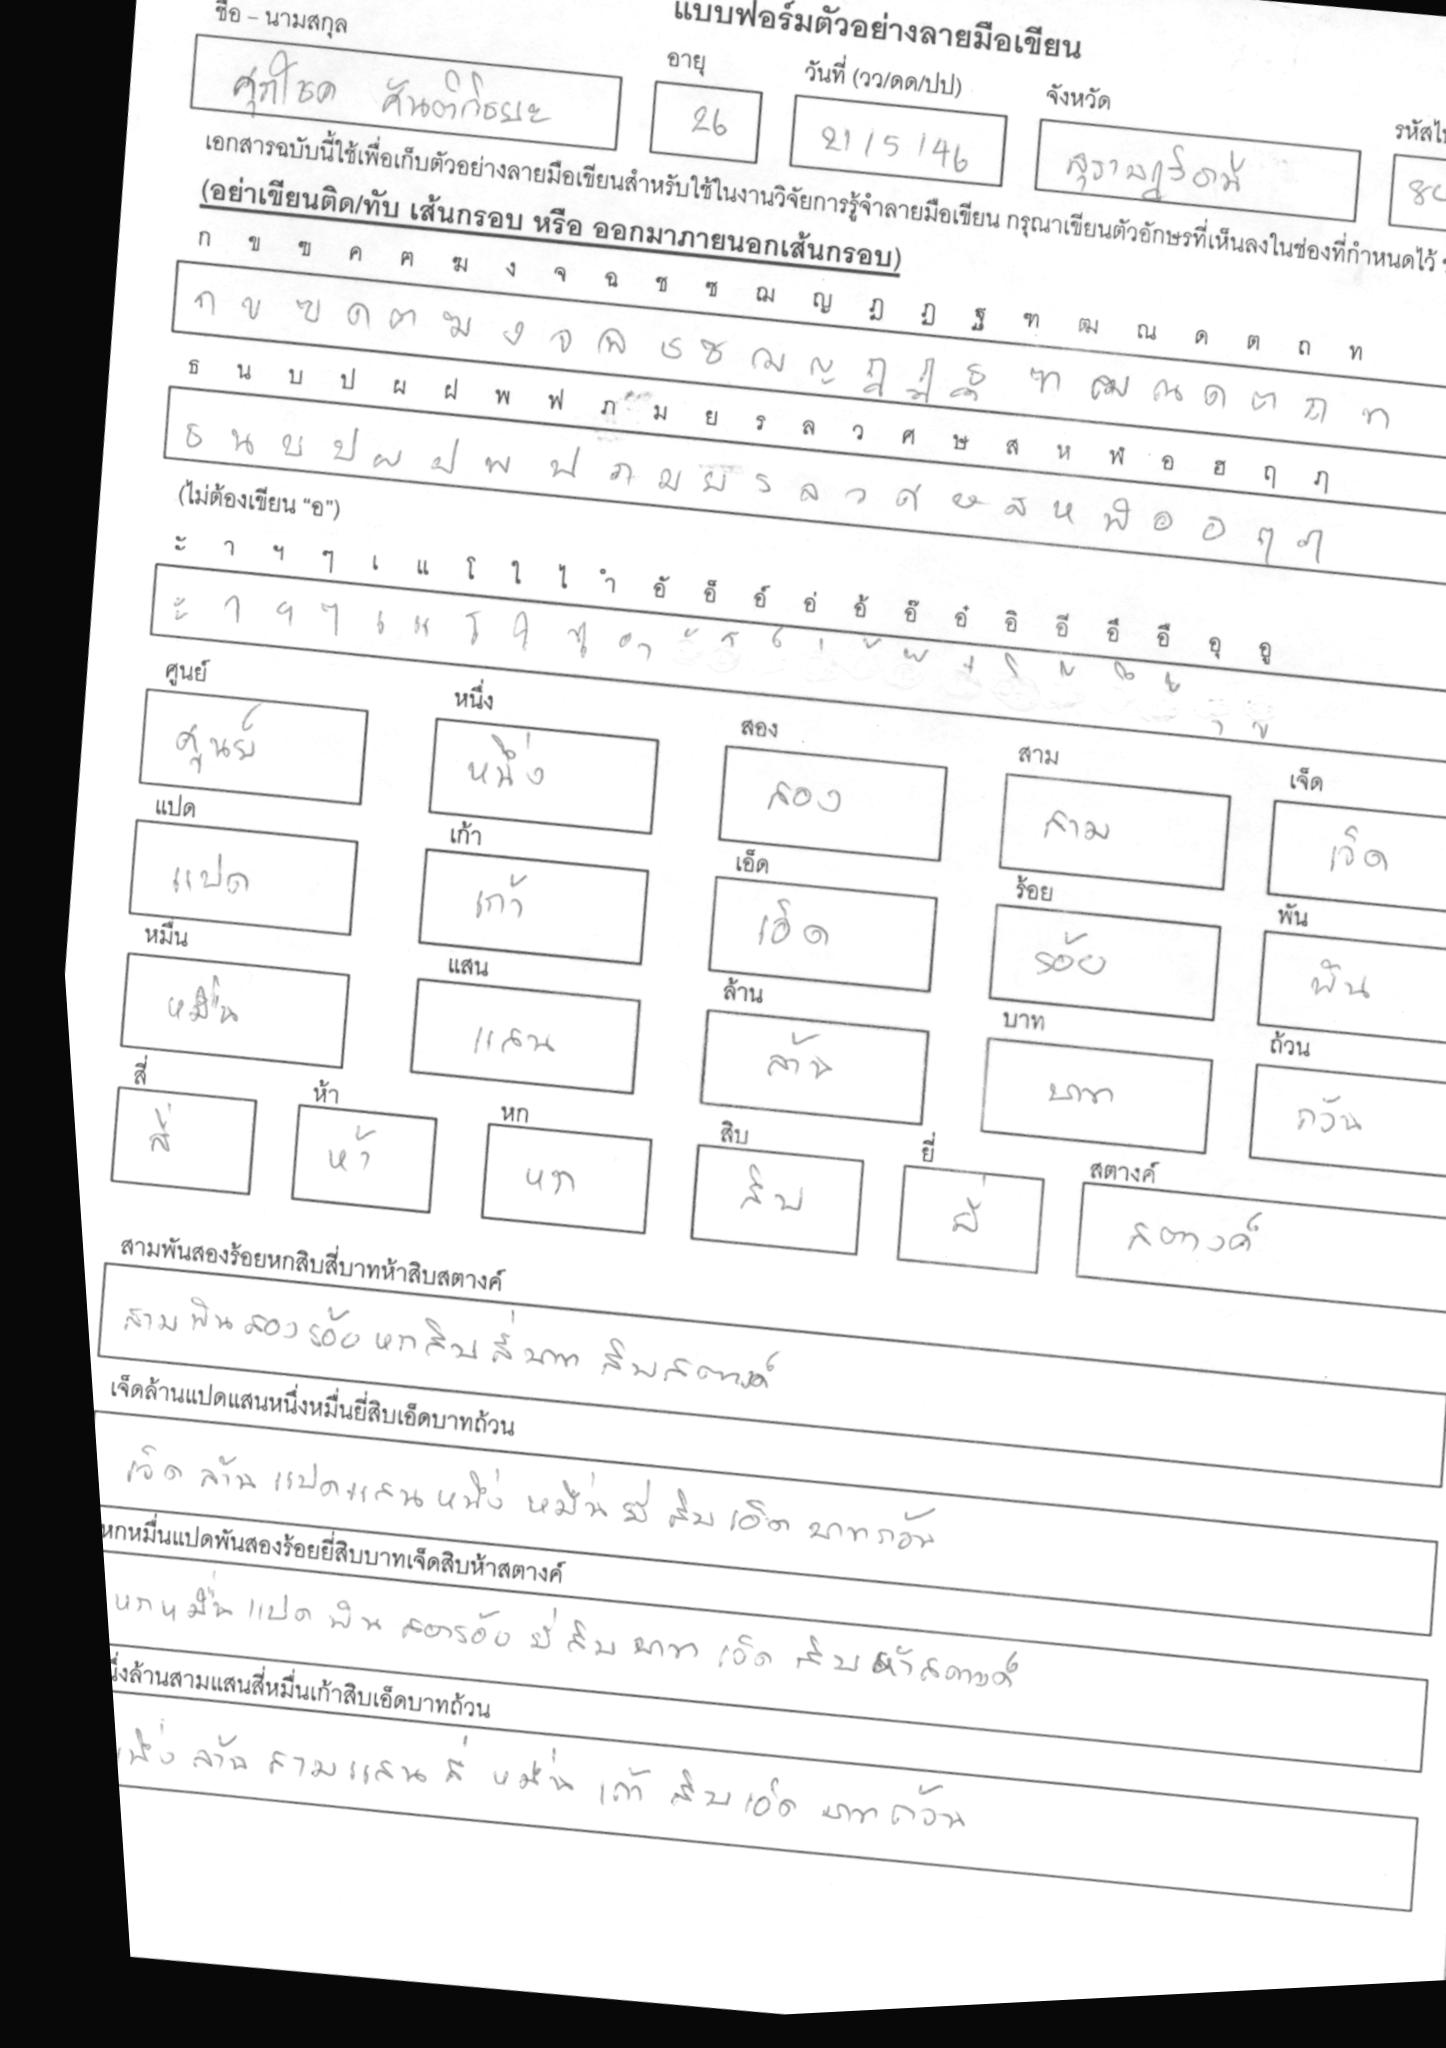 แบบฟอร์มตัวอย่างลายมือเขียน
ชื่อ – นามสกุล อายุ วันที่ (วว/ดด/ปป) จังหวัด
ศุภโชค 26 21/5/46 สุราษฎร์ธานี
เอกสารฉบับนี้ใช้เพื่อเก็บตัวอย่างลายมือเขียนสำหรับใช้ในงานวิจัยการรู้จำลายมือเขียน กรุณาเขียนตัวอักษรที่เห็นลงในช่องที่กำหนดไว้
(อย่าเขียนติด/ทับ เส้นกรอบ หรือ ออกมาภายนอกเส้นกรอบ)
ก ข ฃ ค ฅ ฆ ง จ ฉ ช ซ ฌ ญ ฎ ฏ ฐ ฑ ฒ ณ ด ต ถ ท
ก ข ฃ ค ฅ ฆ ง จ ฉ ช ซ ฌ ญ ฎ ฏ ฐ ฑ ฒ ณ ด ต ถ ท
ธ น บ ป ผ ฝ พ ฟ ภ ม ย ร ล ว ศ ษ ส ห ฬ อ ฮ ฤ ฦ
ธ น บ ป ผ ฝ พ ฟ ภ ม ย ร ล ว ศ ษ ส ห ฬ อ ฮ ฤ ฦ
(ไม่ต้องเขียน “อ”)
ะ า ฯ ๆ เ แ โ ใ ไ ำ อั อ็ อ์ อ่ อ้ อ๊ อ๋ อิ อี อึ อื อุ อู
ะ า ฯ ๆ เ แ โ ใ ไ ำ ั ็ ์ ่ ้ ๊ ๋ ิ ี ึ ื ุ ู
ศูนย์ หนึ่ง สอง สาม เจ็ด
ศูนย์ หนึ่ง สอง สาม เจ็ด
แปด เก้า เอ็ด ร้อย พัน
แปด เก้า เอ็ด ร้อย พัน
หมื่น แสน ล้าน บาท ถ้วน
หมื่น แสน ล้าน บาท ถ้วน
สี่ ห้า หก สิบ ยี่ สตางค์
สี่ ห้า หก สิบ ยี่ สตางค์
สามพันสองร้อยหกสิบสี่บาทห้าสิบสตางค์
สามพันสองร้อยหกสิบสี่บาท สิบสตางค์
เจ็ดล้านแปดแสนหนึ่งหมื่นยี่สิบเอ็ดบาทถ้วน
เจ็ด ล้าน แปดแสน หนึ่ง หมื่น ยี่ สิบ เอ็ด บาทถ้วน
หกหมื่นแปดพันสองร้อยยี่สิบบาทเจ็ดสิบห้าสตางค์
หกหมื่น แปด พัน สองร้อย ยี่ สิบ บาท เจ็ด สิบ ห้าสตางค์
นึ่งล้านสามแสนสี่หมื่นเก้าสิบเอ็ดบาทถ้วน
หนึ่ง ล้าน สามแสน สี่ หมื่น เก้า สิบ เอ็ด บาทถ้วน